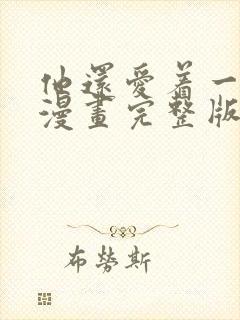 他還愛着一
漫畫完整版
布勞斯